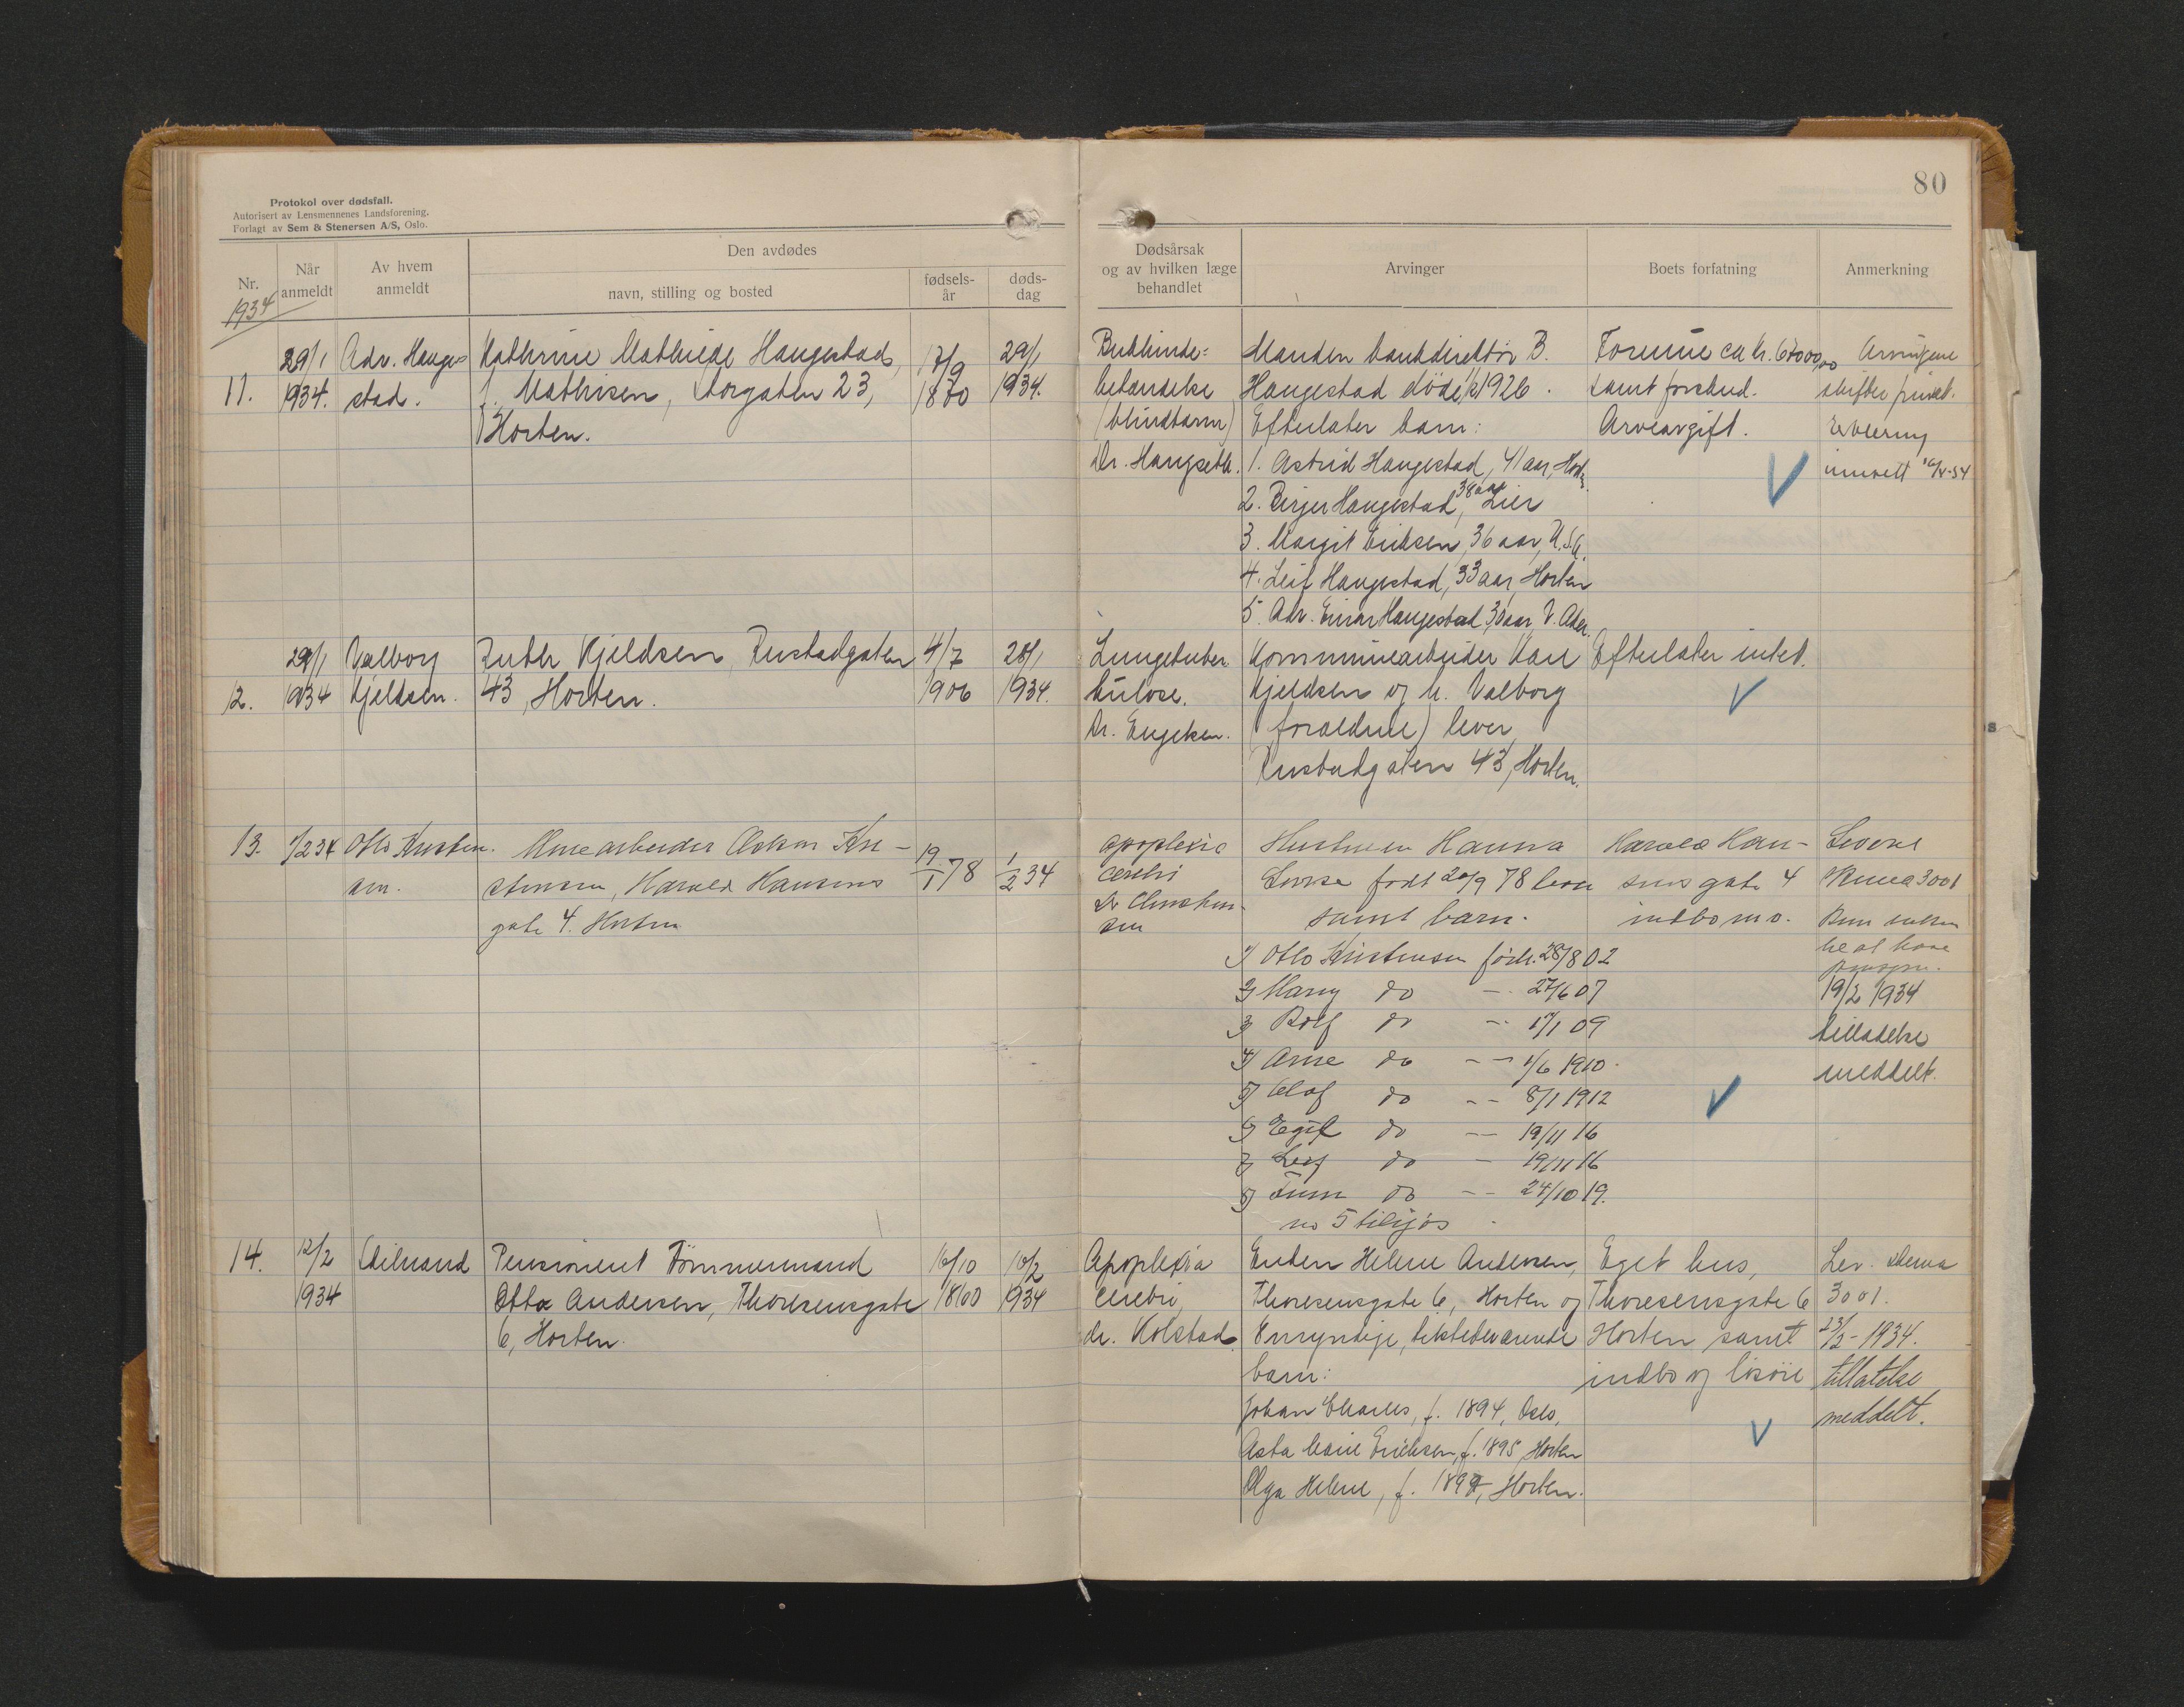 80
Protokol over dødsfall.
Autorisert av Lensmennenes Landsforening.
Forlagt av Sem & Stenersen A/S, Oslo.
Nr.
Når anmeldt
Av hvem anmeldt
Den avdødes
navn, stilling og bosted
fødsels-år
døds-dag
Dødsårsak og av hvilken læge behandlet
Arvinger
Boets forfatning
Anmerkning
1934
11.
29/1 1934.
Adv. Haugestad.
Kathrine Mathilde Haugestad,
f. Mathisen, Storgaten 23,
Horten.
17/9 1870
29/1 1934.
Bukhinde=
betændelse
(blindtarm)
Dr. Haugseth.
Manden bankdirektør B.
Haugestad døde 1926.
Efterlater barn:
1. Astrid Haugestad, 41 aar,
2. Birger Haugestad, 38 aar Lier
3. Margit Eriksen, 36 aar, U.S.A.
4. Leif Haugestad, 33 aar, Horten
5. Adv. Einar Haugestad, 30 aar, V. Aker.
Formue ca kr.
samt forskud.
Arveavgift.
Arvingene
skifter privat.
Erklering
innsett
12.
29/1 1934
Valborg
Kjeldsen.
Ruth Kjeldsen, Rustadgaten
43, Horten.
4/7 1906
28/1 1934.
Lungetuber
kulose.
Dr. Engelsen.
Kommunearbeider Karl
Kjeldsen og h. Valborg
(foreldrene) lever
Rustadgaten 43, Horten.
Efterlater intet.
13.
1/2 34
Otto Kristen
sen.
Minearbeider Oskar Kri-
stensen, Harald Hansens
gate 4. Horten
19/1 78
1/2 34
apoplexia
cerebri
Dr Christen
sen
Hustruen Hanna
Lovise født 20/9 78 lever
samt barn.
1) Otto Kristensen født 28/8 02
2) Harry do - 27/6 07
3) Rolf do - 17/1 09
4) Arne do - 1/6 1910.
5) Olaf do - 8/1 1912
6) Egil do - 19/11 16
7) Leif do - 19/11 16
8) Finn do - 24/10 19.
no 5 tilsjøs
Harald Han-
sens gate 4
indbo m.v.
Skema 3001
19/2 1934
tilladelse
meddelt.
14.
12/2 1934
Skilnand
Pensionert Tømmermand
Otto Andersen, Thoresensgate
6, Horten.
16/10 1860
10/2 1934
Apoplexia
cerebri,
dr. Kolstad.
Enken Helene Andersen,
Thoresensgate 6, Horten og
6 myndige, tilstedeværende
barn:
Johan Charles, f. 1894, Oslo,
Asta Marie Erichsen, f. 1895, Horten
Olga Helene, f. 1897, Horten.
Eget hus,
Thoresensgate 6
Horten samt
indbo og løsøre
Lev. skema
3001.
23/2-1934.
tillatelse
meddelt.